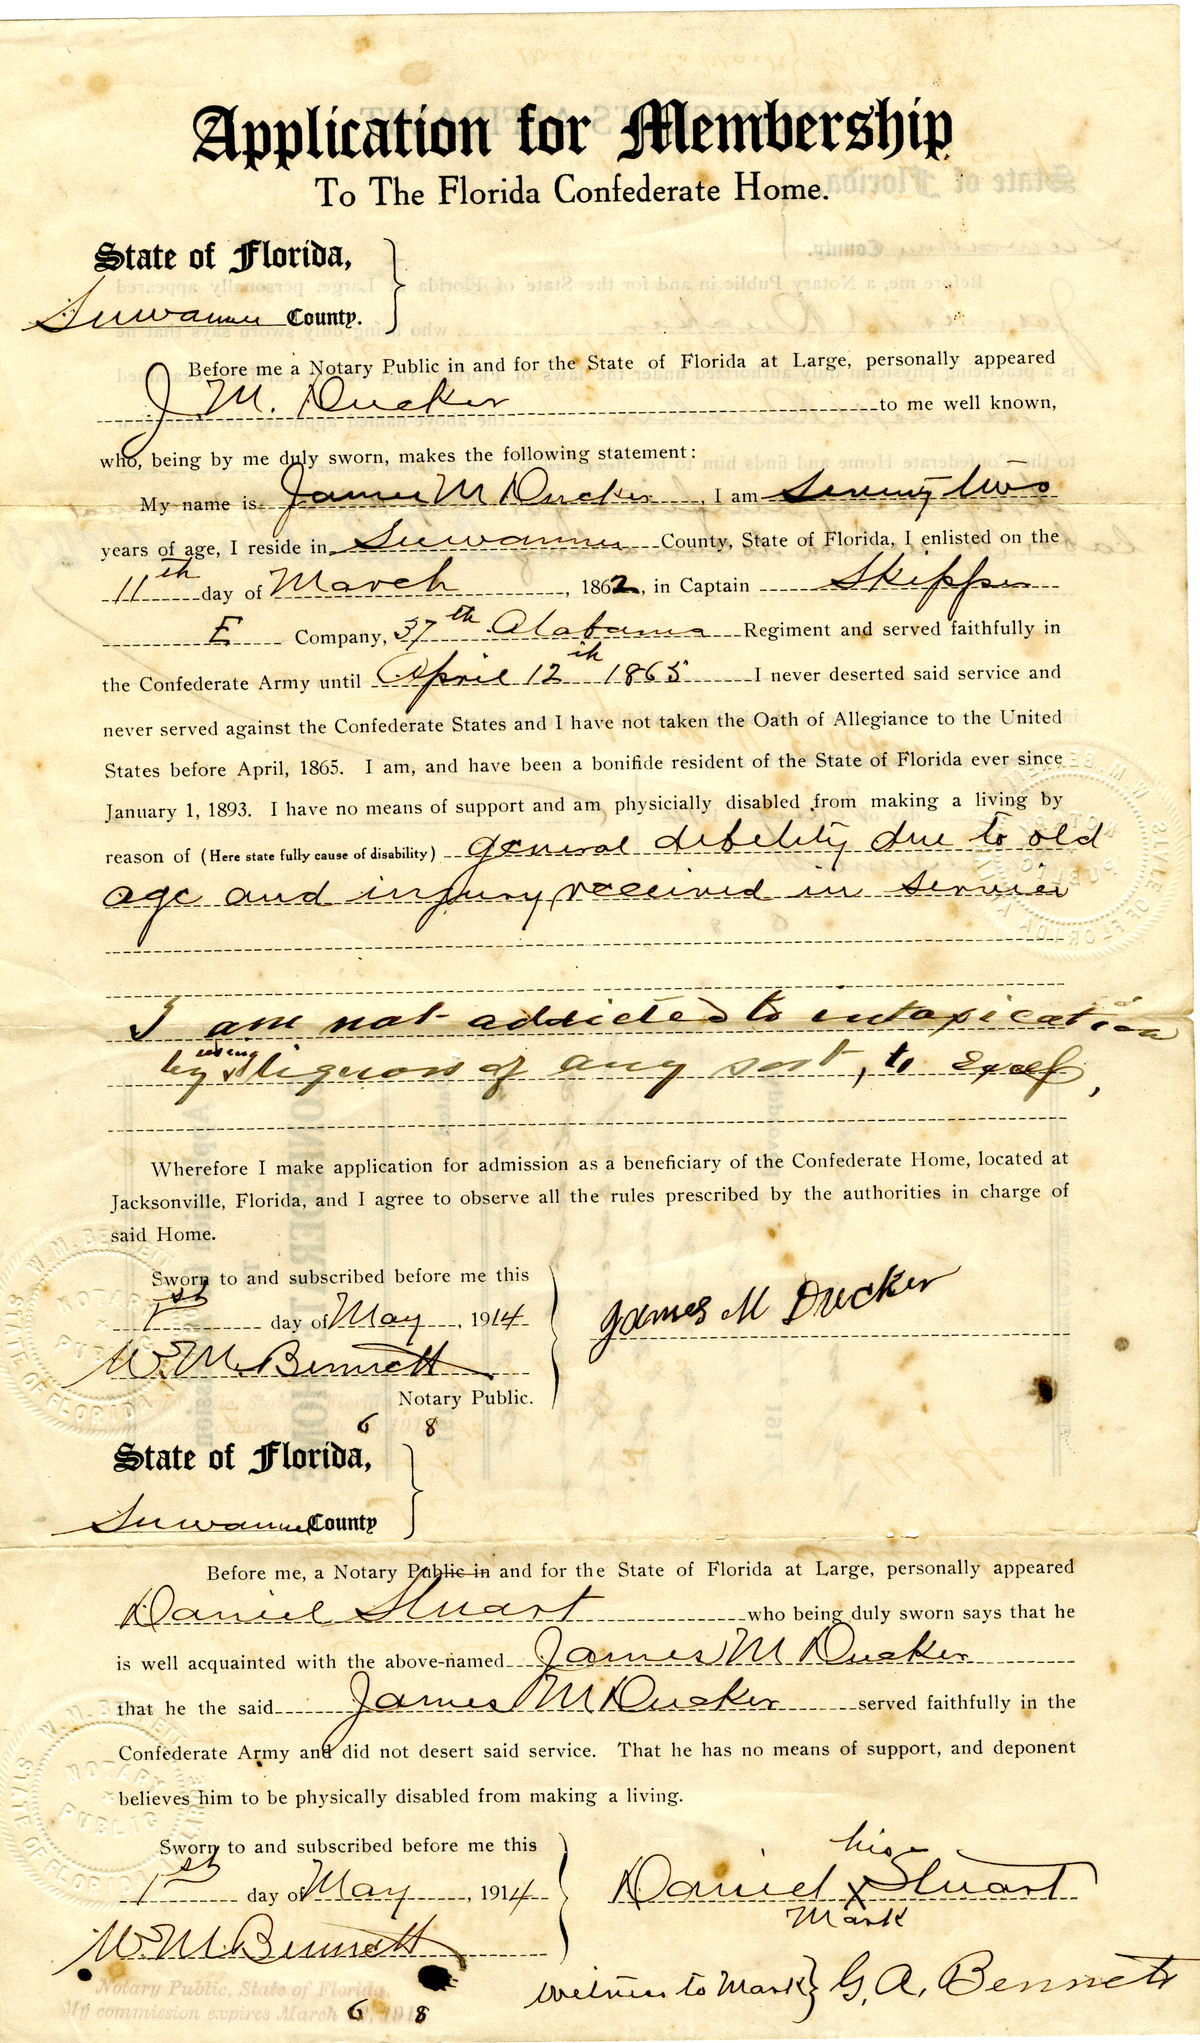 Application for Membership
To The Florida Confederate Home.
State of Florida,
Suwannee County.
Before me a Notary Public in and for the State of Florida at Large, personally appeared
J. M. Ducker to me well known,
who, being by me duly sworn, makes the following statement:
My name is James M Ducker, I am seventy two
years of age, I reside in Suwannee County, State of Florida, I enlisted on the
11th day of March, 1862, in Captain Skipper
E Company, 37th Alabama Regiment and served faithfully in
the Confederate Army until April 12th 1865 I never deserted said service and
never served against the Confederate States and I have not taken the Oath of Allegiance to the United
States before April, 1865. I am, and have been a bonifide resident of the State of Florida ever since
January 1, 1893. I have no means of support and am physicially disabled from making a living by
reason of (Here state fully cause of disability) general debelity due to old
age and injury received in service
I am not addicted to intoxication
by using liquors of any sort, to Excess,
Wherefore I make application for admission as a beneficiary of the Confederate Home, located at
Jacksonville, Florida, and I agree to observe all the rules prescribed by the authorities in charge of
said Home.
Sworn to and subscribed before me this
1st day of May, 1914
James M Ducker
W. M. Bennett
Notary Public.
6 8
State of Florida,
Suwannee County
Before me, a Notary Public in and for the State of Florida at Large, personally appeared
Daniel Stuart who being duly sworn says that he
is well acquainted with the above-named James M Ducker
that he the said James M Ducker served faithfully in the
Confederate Army and did not desert said service. That he has no means of support, and deponent
believes him to be physically disabled from making a living.
Sworn to and subscribed before me this
1st day of May, 1914
his
Daniel X Stuart
Mark
W. M. Bennett
Witness to Mark} G. A. Bennett
Notary Public, State of Florida.
My commission expires March
6 8
W. M. BENNETT
NOTARY PUBLIC
STATE OF FLORIDA